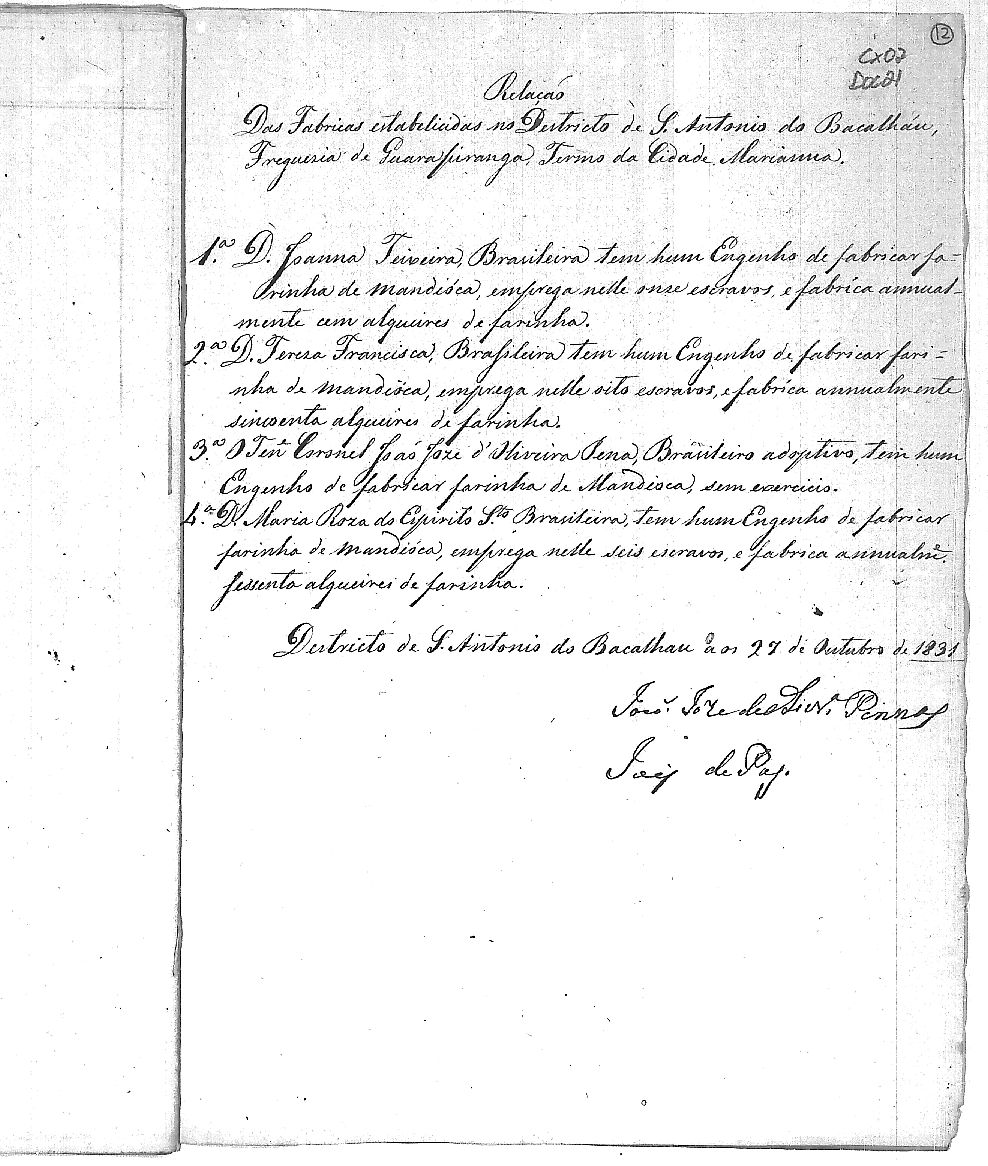 12
Cx02
Doc21
Relação
Das Fabricas estabelicidas no Destricto de S. Antonio do Bacalháu,
Freguezia de Guarapiranga, Termo da Cidade Marianna.
1.ª D. Joanna Teixeira, Brasileira tem hum Engenho de fabricar fa-
rinha de mandióca, emprega nelle onze escravos, e fabríca annual-
mente cem alqueires de farinha.
2.ª D. Tereza Francisca, Brasileira tem hum Engenho de fabricar fari-
nha de mandióca, emprega nelle oito escravos, e fabríca annualmente
sincoenta alqueires de farinha.
3.ª O Ten.e Coronel João Joze d'Oliveira Pena, Brasileiro adoptivo, tem hum
Engenho de fabricar farinha de Mandioca, sem exercicio.
4.ª D. Maria Roza do Espirito S.to Brasileira, tem hum Engenho de fabricar
farinha de mandióca, emprega nelle seis escravos, e fabrica annualm.e
sessenta alqueires de farinha.
Destricto de S. Antonio do Bacalhau aos 27 de Outubro de 1831
João Joze de Oliv.ra Penna
Juiz de Paz.